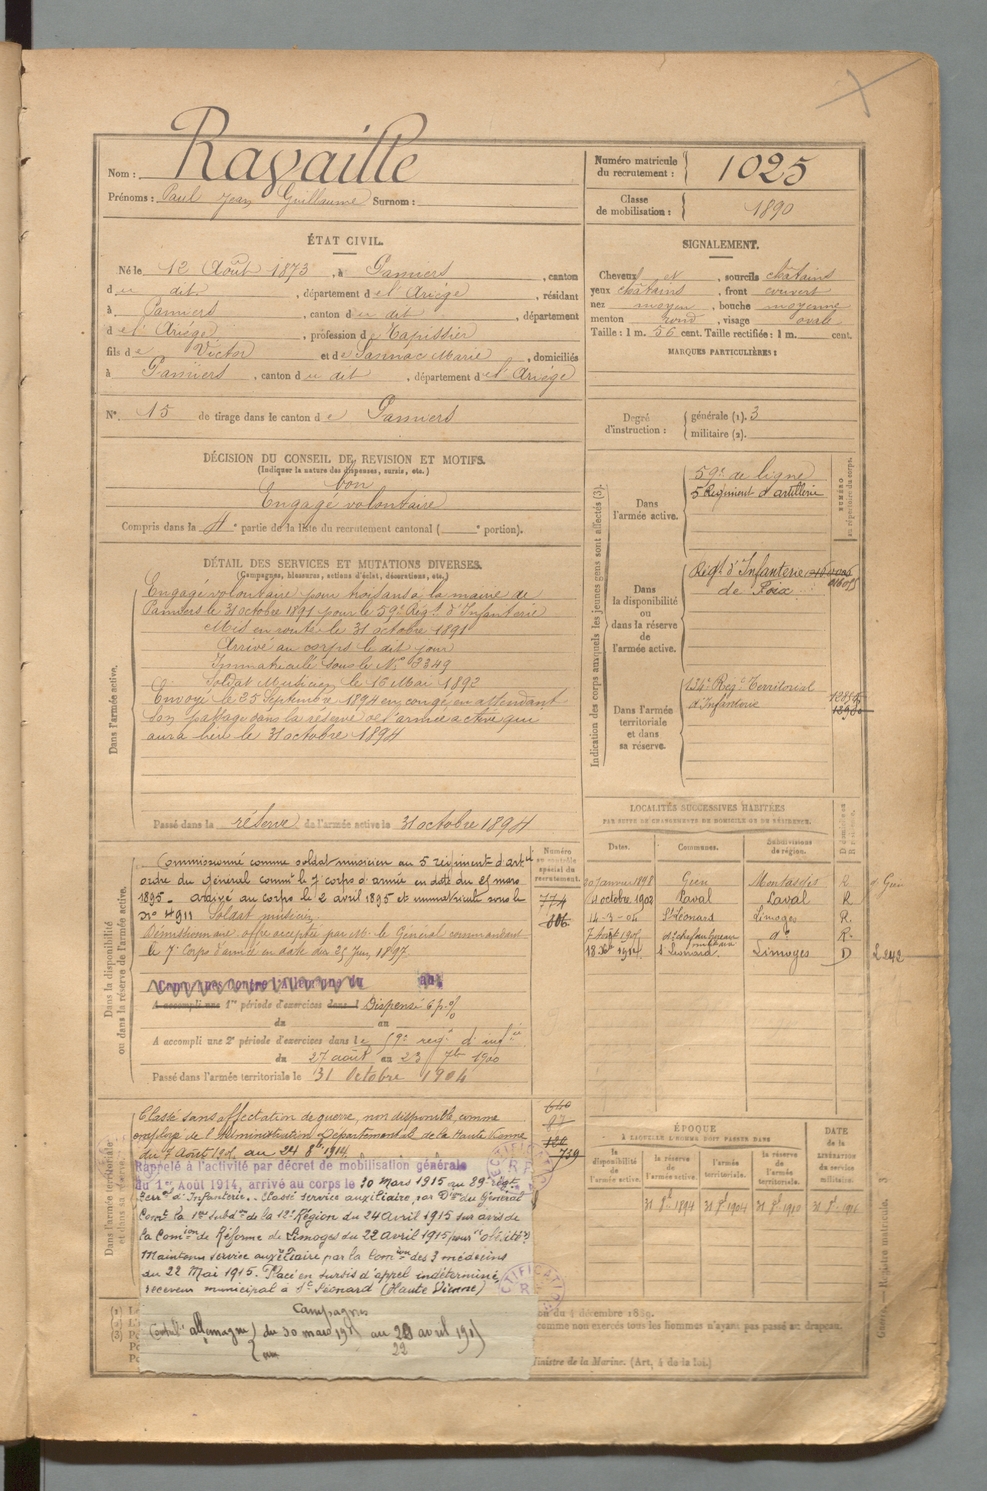 Nom : Ravaille
Prénoms : Paul Jean Guillaume Surnom :
Numéro matricule du recrutement : 1025
Classe de mobilisation : 1890
ÉTAT CIVIL.
Né le 12 Août 1873, à Pamiers, canton
du dit, département de l'Ariège, résidant
à Pamiers, canton du dit, département
de l'Ariège, profession de Tapissier
fils de Victor et de Sannac Marie, domiciliés
à Pamiers, canton du dit, département de l'Ariège
N° 15 de tirage dans le canton de Pamiers
SIGNALEMENT.
Cheveux et, sourcils châtains
yeux châtains, front couvert
nez moyen, bouche moyenne
menton rond, visage ovale
Taille : 1 m. 56 cent. Taille rectifiée : 1 m. cent.
MARQUES PARTICULIÈRES :
Degré d'instruction : générale (1). 3
militaire (2).
DÉCISION DU CONSEIL DE REVISION ET MOTIFS.
(Indiquer la nature des dispenses, sursis, etc.)
bon
Engagé volontaire
Compris dans la 4e partie de la liste du recrutement cantonal ( e portion).
DÉTAIL DES SERVICES ET MUTATIONS DIVERSES.
(Campagnes, blessures, actions d'éclat, décorations, etc.)
Dans l'armée active.
Engagé volontaire pour trois ans à la mairie de
Pamiers le 31 octobre 1891 pour le 59e Régt d'Infanterie
Mis en route le 31 octobre 1891
Arrivé au corps le dit jour
Immatriculé sous le N° 3349
Soldat Musicien le 16 Mai 1892
Envoyé le 25 Septembre 1894 en congé en attendant
son passage dans la réserve de l'armée active qui
aura lieu le 31 octobre 1894
Passé dans la réserve de l'armée active le 31 octobre 1894
Indication des corps auxquels les jeunes gens sont affectés (3).
NUMÉRO au répertoire du corps.
Dans l'armée active.
59e de ligne
5 Régiment d'artillerie
Dans la disponibilité ou dans la réserve de l'armée active.
Régt d'Infanterie
de Foix
Dans l'armée territoriale et dans sa réserve.
134e Régt Territorial
d'Infanterie
LOCALITÉS SUCCESSIVES HABITÉES
PAR SUITE DE CHANGEMENTS DE DOMICILE OU DE RÉSIDENCE.
Dates. Communes. Subdivisions de région.
20 janvier 1898 Gien Montargis R
14 octobre 1902 Laval Laval R
14-3-04 St Léonard Limoges R.
7 août 1905 do R.
1914 St Léonard Limoges D
Dans la disponibilité ou dans la réserve de l'armée active.
Numéro au contrôle spécial du recrutement.
774
606
Commissionné comme soldat musicien au 5 régiment d'art
ordre du Général commt le 7 corps d'armée en date du 25 mars
1895. Arrivé au corps le 2 avril 1895 et immatriculé sous le
n° 4911 Soldat musicien
Démissionnaire offre acceptée par M. le Général commandant
le 7e Corps d'armée en date du 25 Juin 1897.
A accompli une 1re période d'exercices dans l Dispensé
du au
A accompli une 2e période d'exercices dans le 59e régt d'infie
du 27 août au 23 7bre 1900
Passé dans l'armée territoriale le 31 Octobre 1904
Dans l'armée territoriale et dans sa réserve.
Classé sans affectation de guerre, non disponible, comme
employé de l'Administration Départementale de la Haute Vienne
du 7 Août 1905 au 24 8bre 1914
Rappelé à l'activité par décret de mobilisation générale
du 1er Août 1914, arrivé au corps le 30 Mars 1915 au 29e régt
terr. d'Infanterie. Classé service auxiliaire par Don du Général
Comt la 1re subdon de la 12e Région du 24 avril 1915 sur avis de
la Comion de Réforme de Limoges du 22 avril 1915 pour "obésité"
Maintenu service auxiliaire par la Comion des 3 médecins
du 22 Mai 1915. Placé en sursis d'appel indéterminé,
receveur municipal à St Léonard (Haute Vienne)
Campagnes
Contre l'Allemagne du 30 mars 1915 au 20 avril 1915
22
640
87
759
ÉPOQUE
À LAQUELLE L'HOMME DOIT PASSER DANS
DATE de la LIBÉRATION du service militaire.
la disponibilité de l'armée active. la réserve de l'armée active. l'armée territoriale. la réserve de l'armée territoriale.
31 8bre 1894 31 8bre 1904 31 8bre 1910 31 8bre 1916
on du 4 décembre 1889.
comme non exercés tous les hommes n'ayant pas passé au drapeau.
Ministre de la Marine. (Art. 4 de la loi.)